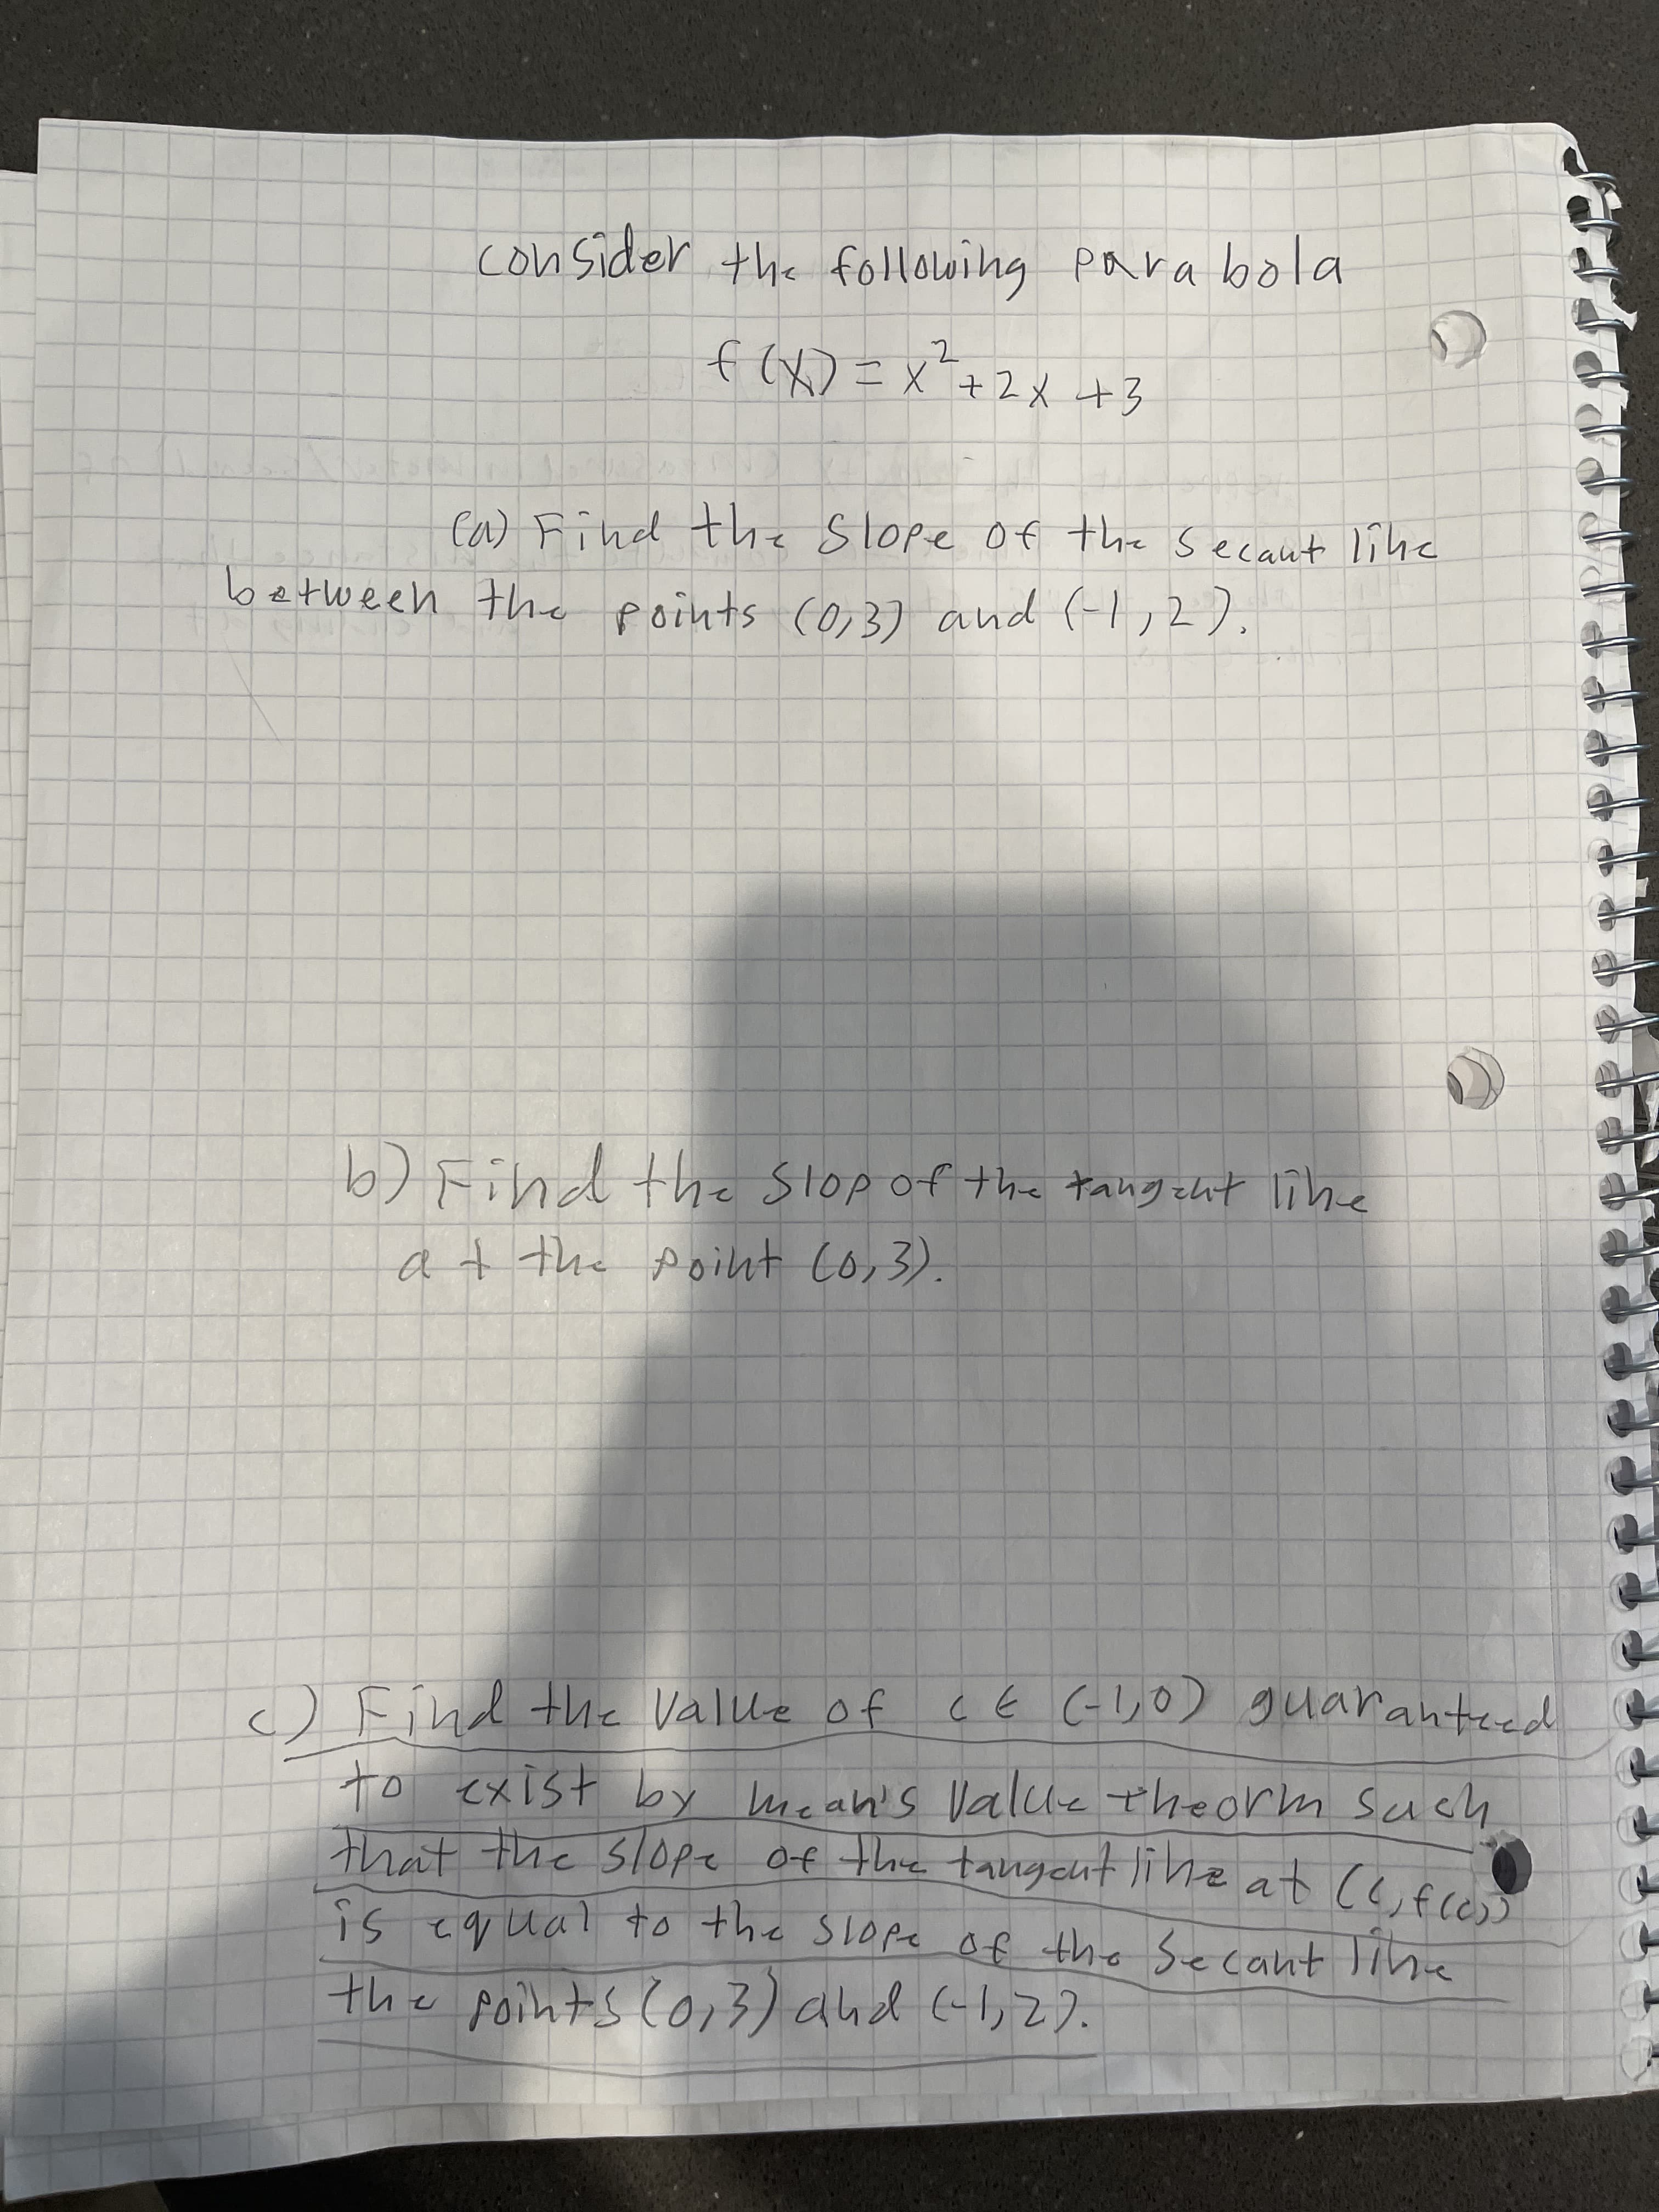 consider the following parabola
f(x) = x² + 2x + 3
(a) Find the slope of the secant line
between the points (0,3) and (-1,2).
b) Find the slop of the tangent line
at the point (0,3).
c) Find the value of c ∈ (-1,0) guaranteed
to exist by mean's value theorm such
that the slope of the tangent line at (c, f(c))
is equal to the slope of the secant line
the points (0,3) and (-1,2).